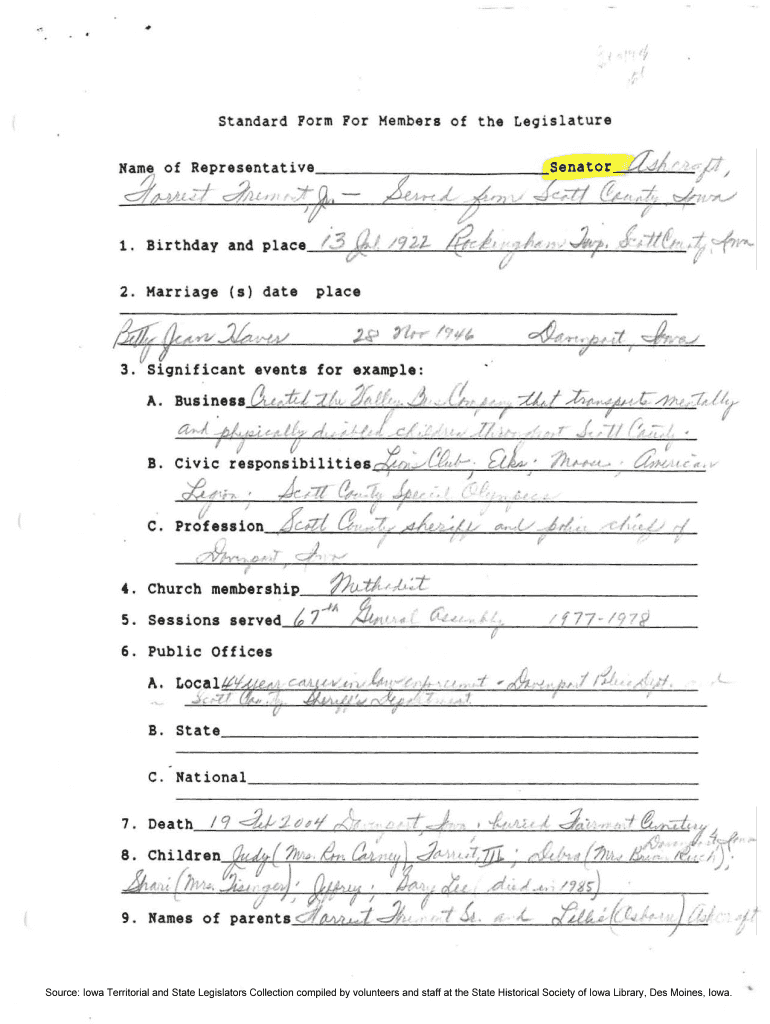 Standard Form For Members of the Legislature
Name of Representative Senator Ashcraft,
Forrest Fremont, Jr. — Served from Scott County, Iowa
1. Birthday and place 13 Jul 1922 Rockingham Twp. Scott County, Iowa
2. Marriage (s) date place
Betty Jean Haver 28 Nov 1946 Davenport, Iowa
3. Significant events for example:
A. Business Created the Valley Bus Company that transports mentally
and physically disabled children throughout Scott County.
B. Civic responsibilities Lion's Club; Elks; Moose; American
Legion; Scott County Special Olympics
C. Profession Scott County sheriff and police chief of
Davenport, Iowa
4. Church membership Methodist
5. Sessions served 67th General Assembly 1977-1978
6. Public Offices
A. Local 44 year career in law enforcement - Davenport Police Dept. and
Scott County Sheriff's Department.
B. State
C. National
7. Death 19 Feb 2004 Davenport, Iowa; buried Fairmont Cemetery,
Davenport, Iowa
8. Children Judy (Mrs. Ron Carney) Forrest, III; Debra (Mrs Brian);
Shari (Mrs. Tisinger); Jeffrey; Gary Lee (died in 1985)
9. Names of parents Forrest Fremont Sr. and Lillie (Osborn) Ashcraft
Source: Iowa Territorial and State Legislators Collection compiled by volunteers and staff at the State Historical Society of Iowa Library, Des Moines, Iowa.